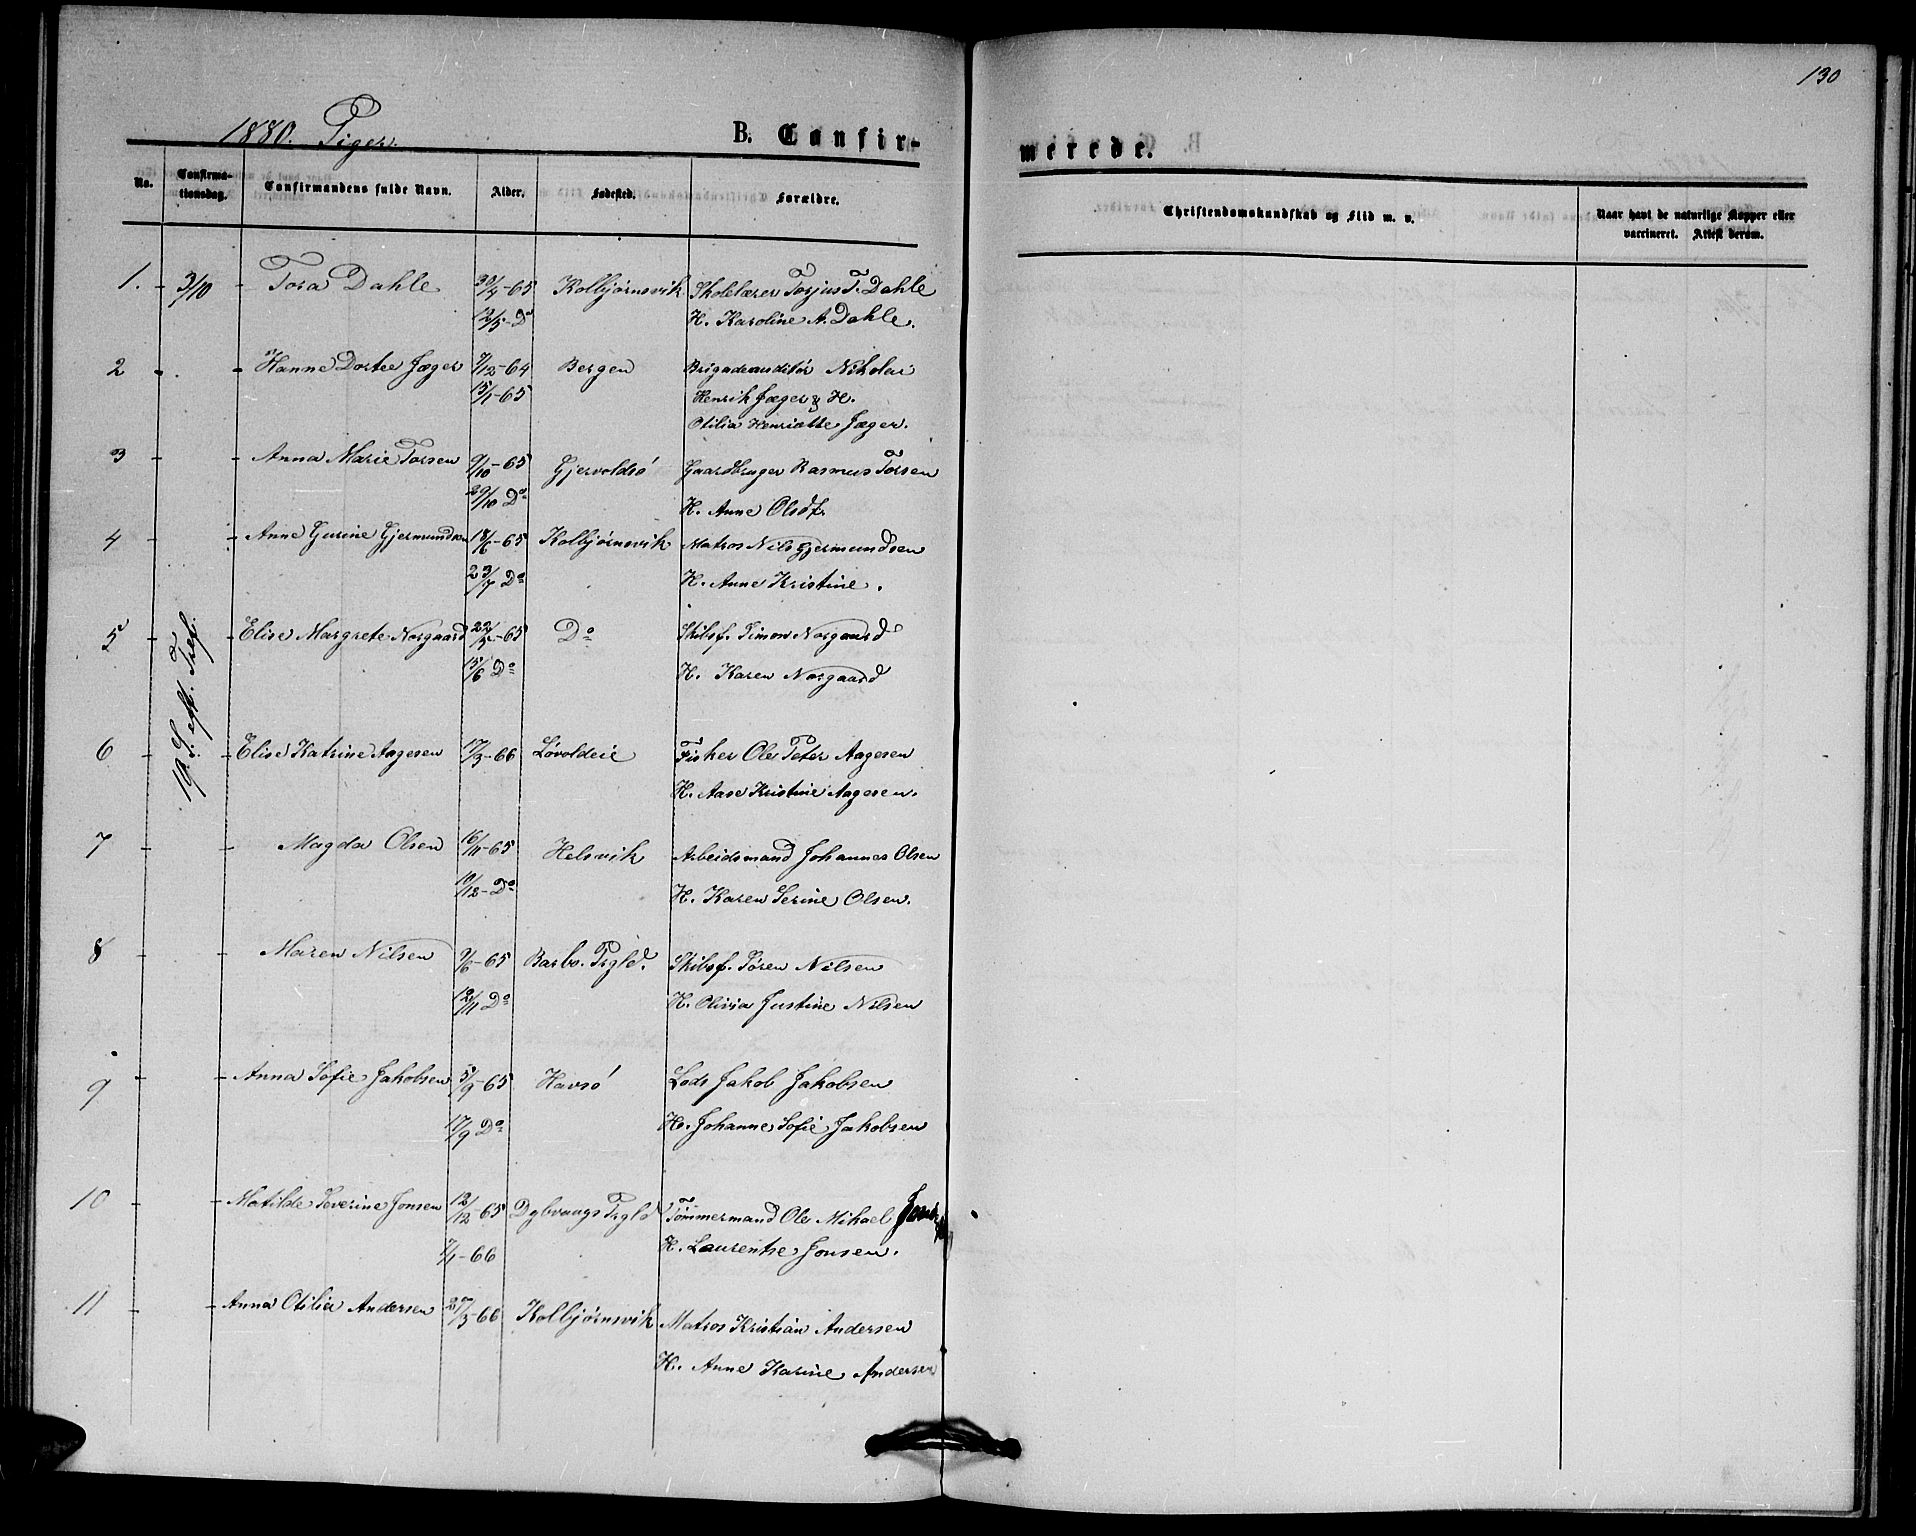 130
1880. Piger.
B. Confir-
merede.
No.
Confirma-
tionsdag.
Confirmandens fulde Navn.
Alder.
Fødested.
Forældre.
Christendomskundskab og Flid m. v.
Naar havt de naturlige Kopper eller
vaccineret. Attest derom.
1. 3/10 Tora Dahle 30/4-65 Kolbjørnsvik Skolelærer Torjus T. Dahle
12/5-Do H. Karoline A. Dahle.
2 Hanne Dortee Jæger 7/12-64 Bergen Brigadeauditør Nikolai
15/1-65 Henrik Jæger & H.
Otilia Henriette Jæger.
3 Anna Marie Torsen 9/10-65 Gjervoldsø Gaardbruger Rasmus Torsen
29/10 Do H. Anne Olsdt.
4 Anne Gurine Gjermundsen 18/6-65 Kolbjørnsvik Matros Nils Gjermundsen
23/7 Do H. Anne Kristine.
19. S. eft. Tref.
5 Elise Margrete Norgaard 22/5-65 Do Skibsf. Simon Norgaard
15/6 Do H. Karen Norgaard
6 Elise Katrine Aagesen 17/3-66 Løvoldeie Fisker Ole Peter Aagesen
H. Aase Kristine Aagesen.
7 Magda Olsen 16/11-65 Helsvik Arbeidsmand Johannes Olsen
10/12-Do H. Karen Serine Olsen.
8 Maren Nilsen 9/6-65 Barbo Prgld. Skibsf. Søren Nilsen
12/11 Do H. Olivia Justine Nilsen
9 Anna Sofie Jakobsen 5/9-65 Havsø Lods Jakob Jakobsen
17/9 Do H. Johanne Sofie Jakobsen
10 Matilde Severine Jonsen 12/12-65 Dybvaags Prgld Tømmermand Ole Mikael
7/1-66 H. Laurentse Jonsen.
11 Anna Otilia Andersen 27/3-66 Kolbjørnsvik Matros Kristian Andersen
H. Anne Karine Andersen